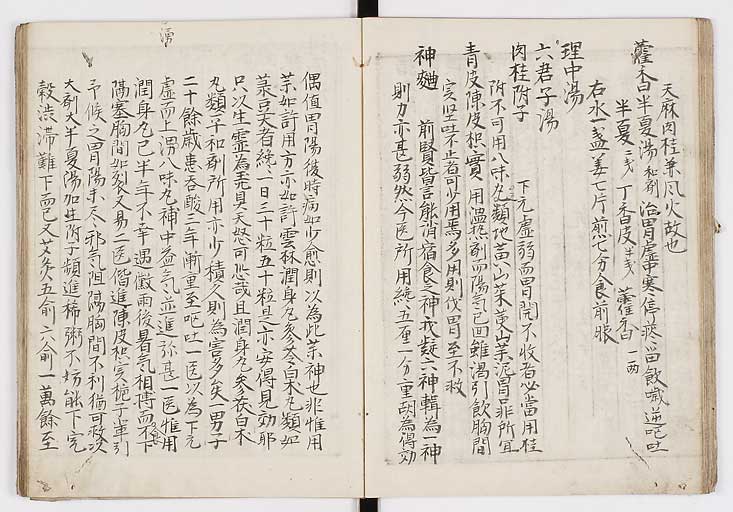 天麻肉桂兼風火故也
藿香半夏湯 和剤 治胃虚中寒停痰留飲噦逆呕吐
半夏 二戋 丁香皮 半戋 藿香 一両
右水一盞姜七片煎七分食前服
理中湯
六君子湯
肉桂附子 下元虚弱而胃関不收者必當用桂
附不可用八味丸類地黄山茱萸山薬泥胃非所宜
青皮陳皮枳實 用温熱剤而陽気已回雖渇引飲胸間
実坚呕不止者可少用焉多用則伐胃至不救
神麯 前賢皆言能消宿食之神我疑六神輯為一神
則力亦甚弱然今医所用纔五厘一分重胡為得効
偶値胃陽後時病如少愈則以為此薬神也非惟用
薬如許用方亦如許雲林潤身丸参苓白朮丸類如
纔一日三十粒五十粒是亦安得見効耶
只以生霊為天怒可恐哉且潤身丸参苓白朮
丸類平和剤所用亦少積久則為害多矣一男子
二十餘歳患呑酸三年漸重至呕吐一医以為下元
虚而上渇八味丸補中益気並進弥甚一医惟用
潤身丸已半年不幸遇微雨後暑気相搏而不下
陽塞胸間如裂又易二医偕進陳皮枳実梔子車引
予候之胃陽未尽邪気阻隔胸間不利猶可救次
大剤大半夏湯加生附子頻進稀粥不妨能下完
穀渋滞難下而已又艾灸五俞六俞一萬餘至